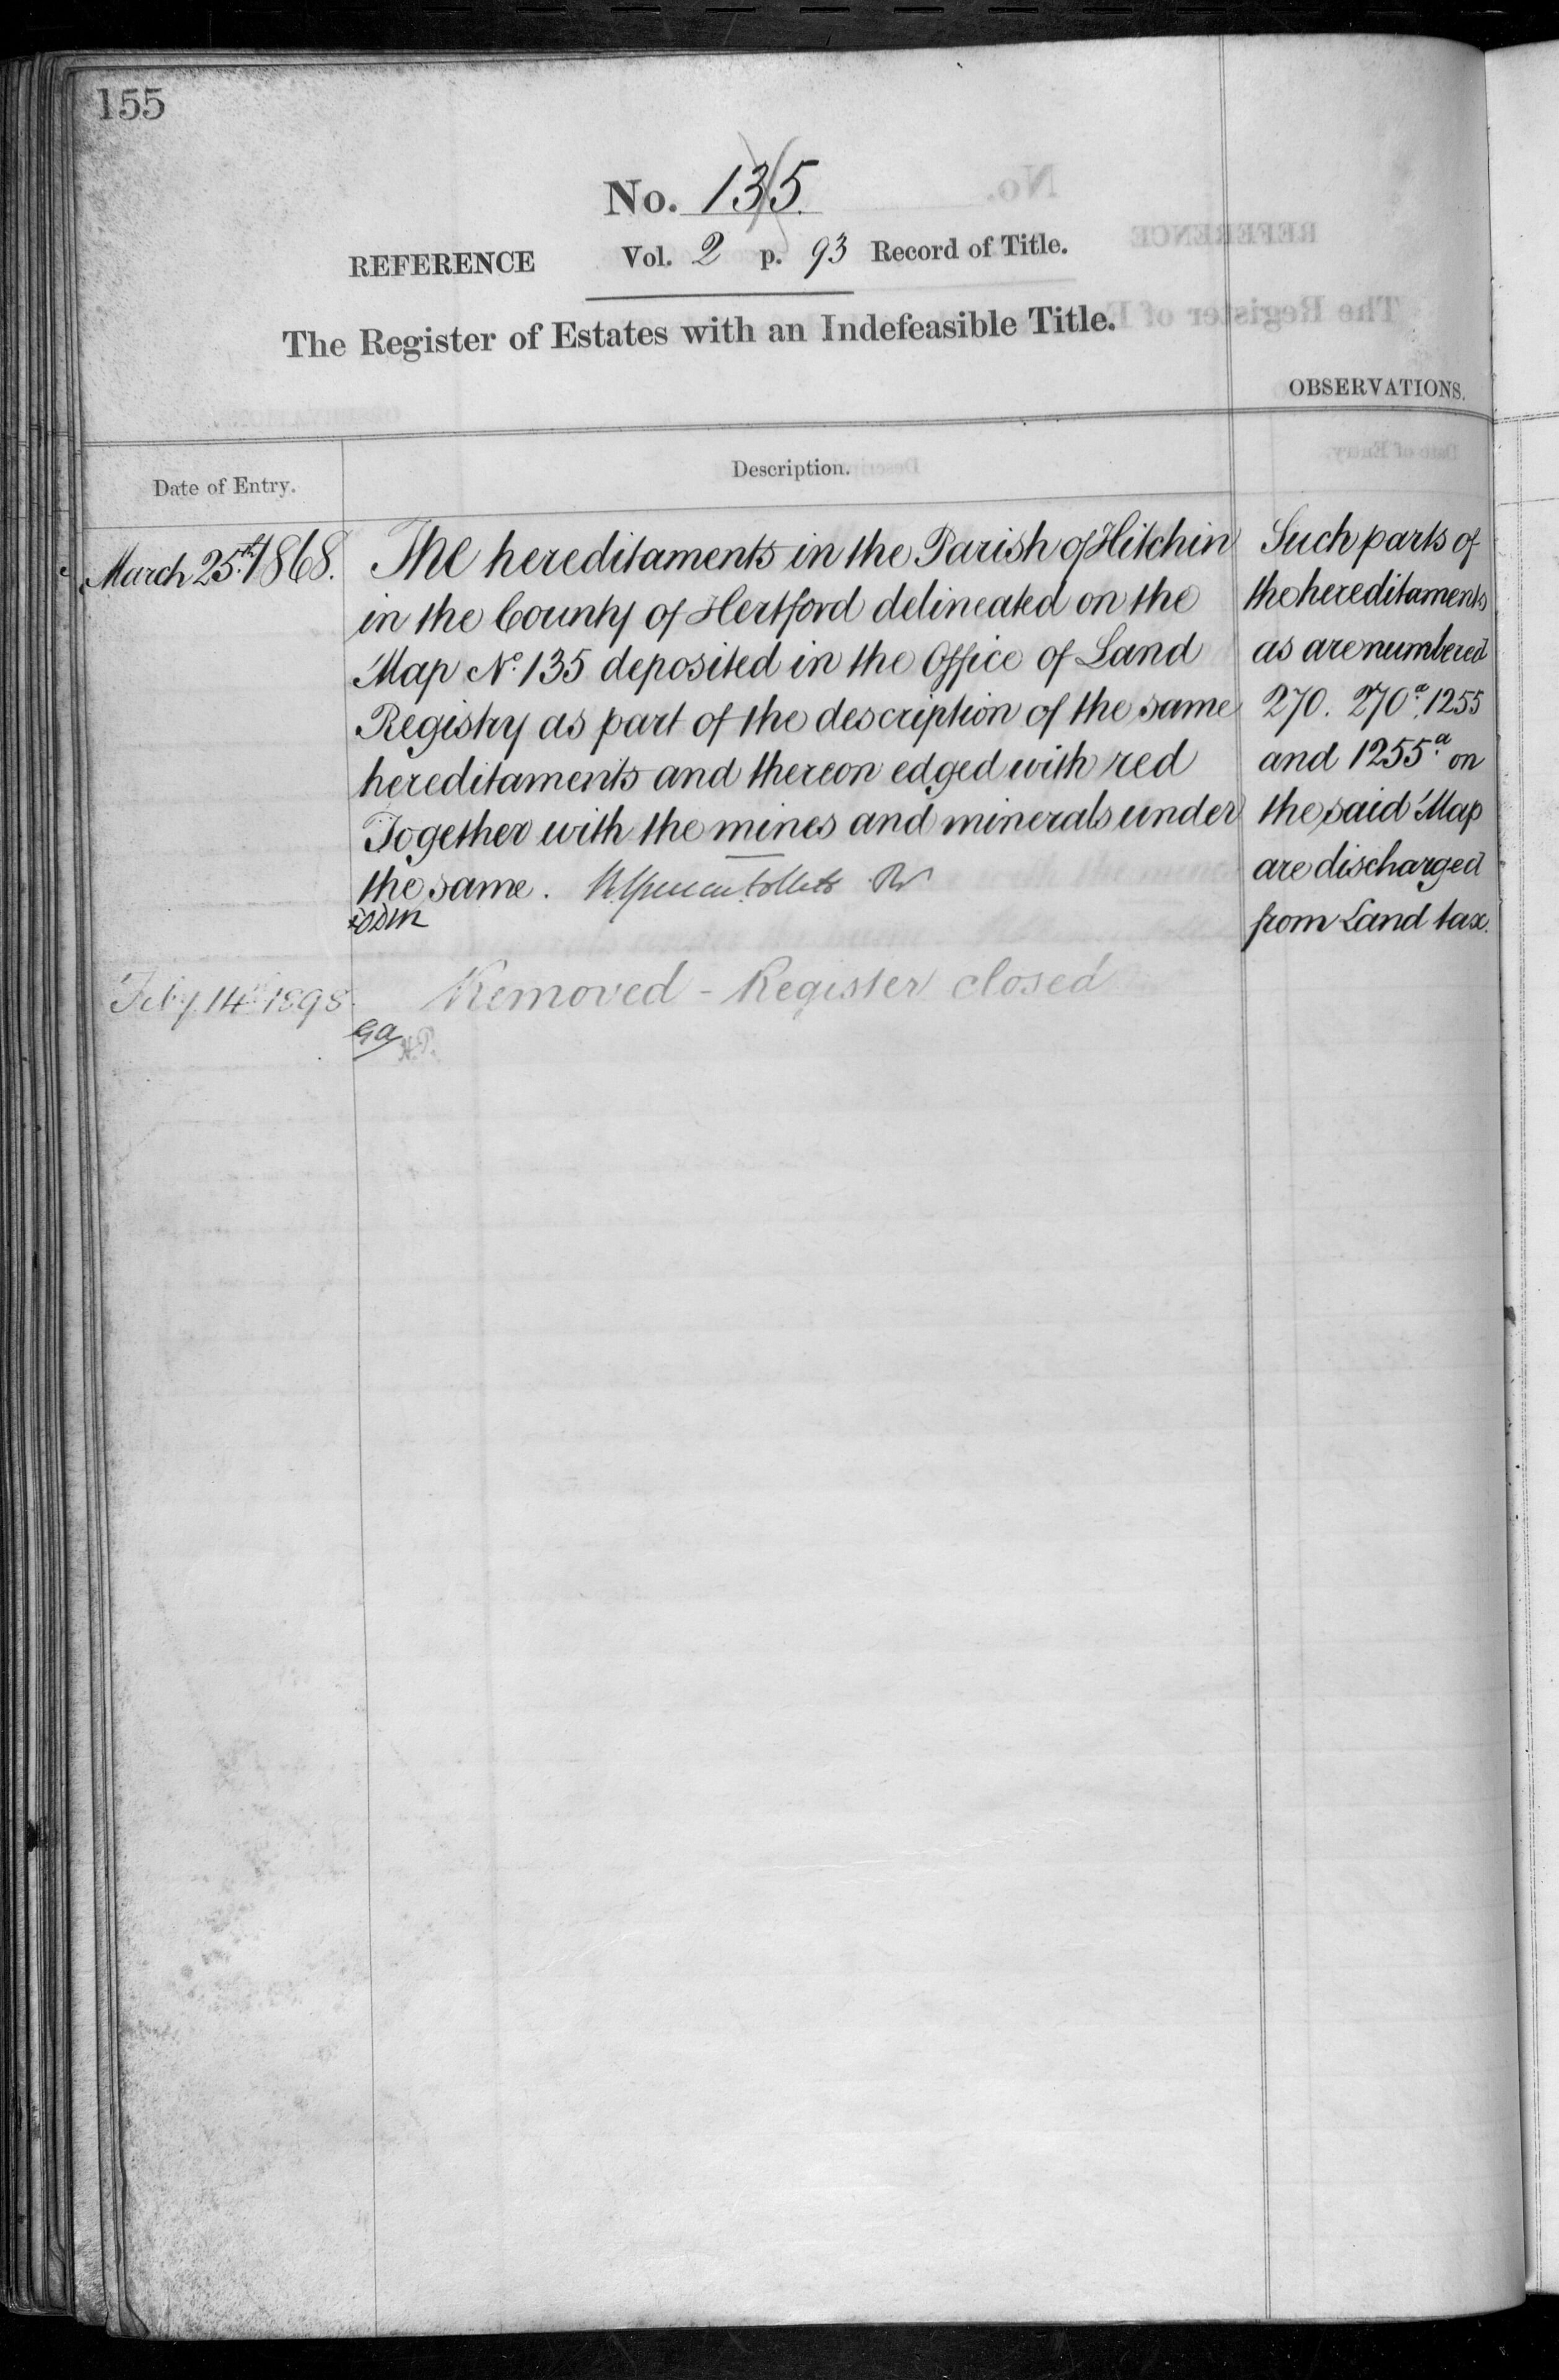 155
No. 135.
REFERENCE Vol. 2 p. 93 Record of Title.
The Register of Estates with an Indefeasible Title.
OBSERVATIONS.
Date of Entry.
Description.
March 25th 1868.
The hereditaments in the Parish of Hitchin
in the County of Hertford delineated on the
Map No. 135 deposited in the Office of Land
Registry as part of the description of the same
hereditaments and thereon edged with red
Together with the mines and minerals under
the same.
Such parts of
the hereditaments
as are numbered
270. 270a. 1255
and 1255a on
the said Map
are discharged
from Land tax.
Feby. 14th 1898.
Removed - Register closed
GA
H.P.